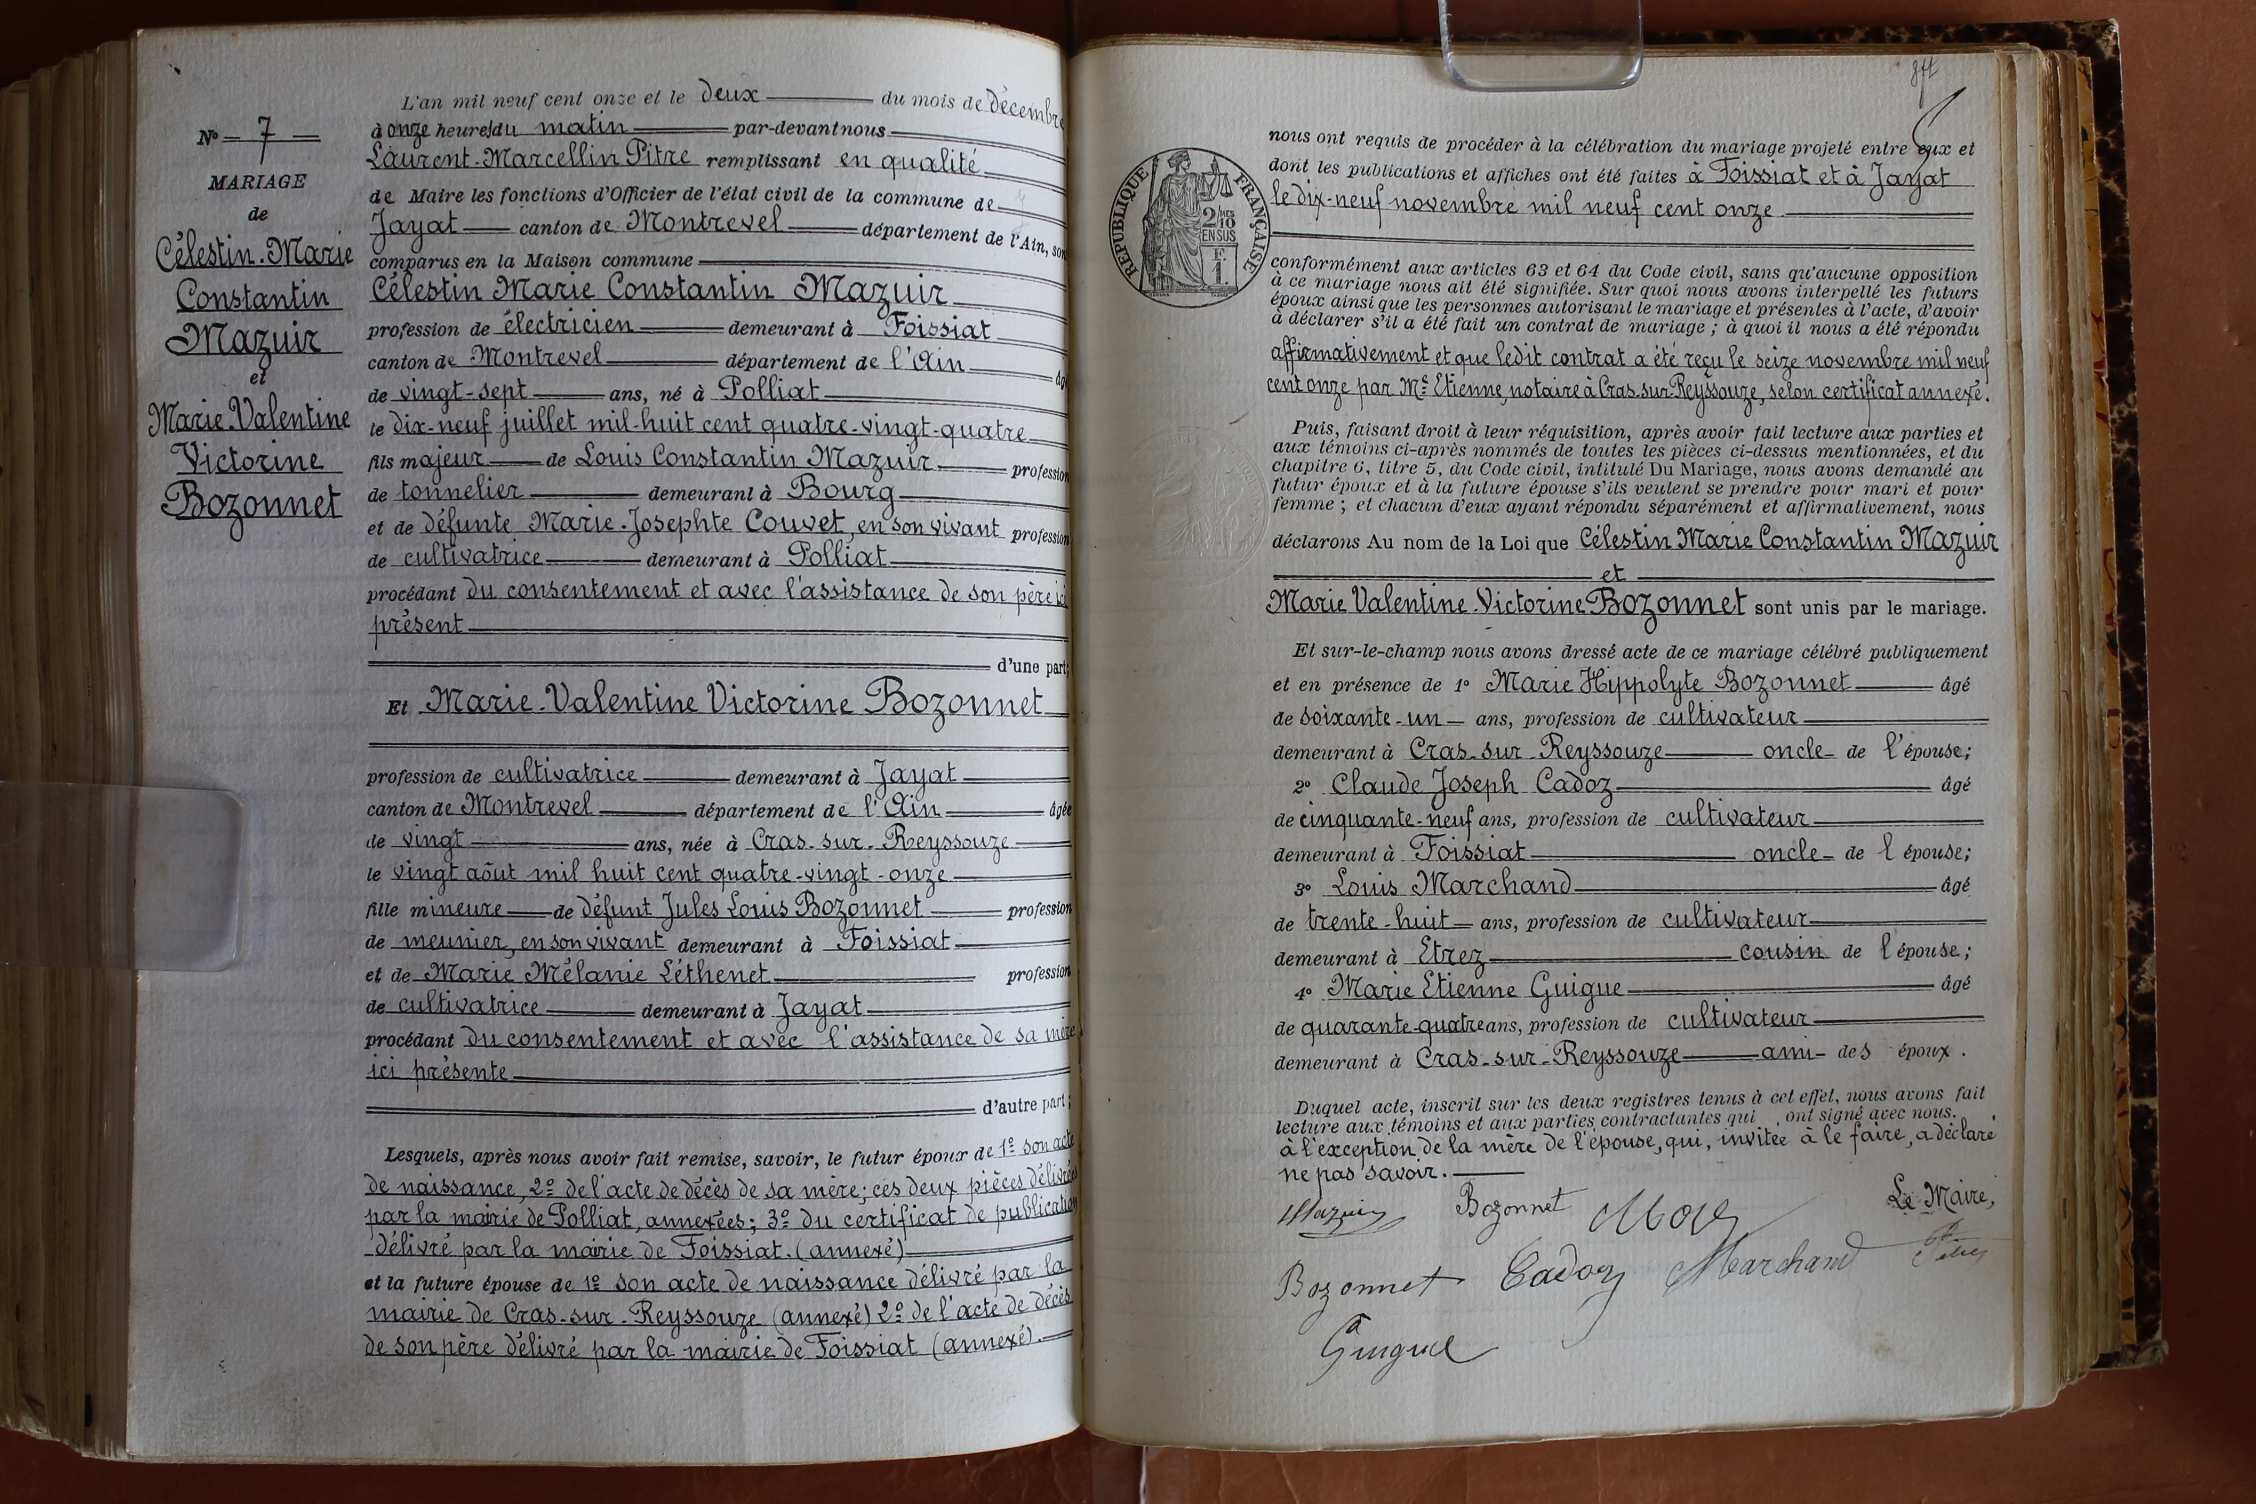 N° 7
MARIAGE
de
Célestin-Marie
Constantin
Mazuir
et
Marie-Valentine
Victorine
Bozonnet
L'an mil neuf cent onze et le deux du mois de décembre
à onze heures du matin par-devant nous
Laurent-Marcellin Pitre remplissant en qualité
de Maire les fonctions d'Officier de l'état civil de la commune de
Jayat canton de Montrevel département de l'Ain, sont
comparus en la Maison commune
Célestin Marie Constantin Mazuir
profession de électricien demeurant à Foissiat
canton de Montrevel département de l'Ain âgé
de vingt-sept ans, né à Polliat
le dix-neuf juillet mil-huit cent quatre-vingt-quatre
fils majeur de Louis Constantin Mazuir profession
de tonnelier demeurant à Bourg
et de défunte Marie-Josephte Couvet, en son vivant profession
de cultivatrice demeurant à Polliat
procédant du consentement et avec l'assistance de son père ici
présent
d'une part;
Et Marie-Valentine Victorine Bozonnet
profession de cultivatrice demeurant à Jayat
canton de Montrevel département de l'Ain âgée
de vingt ans, née à Cras-sur-Reyssouze
le vingt août mil huit cent quatre-vingt-onze
fille mineure de défunt Jules Louis Bozonnet profession
de meunier, en son vivant demeurant à Foissiat
et de Marie Mélanie Léthenet profession
de cultivatrice demeurant à Jayat
procédant du consentement et avec l'assistance de sa mère
ici présente
d'autre part;
Lesquels, après nous avoir fait remise, savoir, le futur époux de 1° son acte
de naissance, 2° de l'acte de décès de sa mère; ces deux pièces délivrées
par la mairie de Polliat, annexées; 3° du certificat de publication
délivré par la mairie de Foissiat. (annexé)
et la future épouse de 1° son acte de naissance délivré par la
mairie de Cras-sur-Reyssouze (annexé) 2° de l'acte de décès
de son père délivré par la mairie de Foissiat (annexé).
RÉPUBLIQUE FRANÇAISE
2/10
EN SUS
F.
1.
nous ont requis de procéder à la célébration du mariage projeté entre eux et
dont les publications et affiches ont été faites à Foissiat et à Jayat
le dix-neuf novembre mil neuf cent onze
conformément aux articles 63 et 64 du Code civil, sans qu'aucune opposition
à ce mariage nous ait été signifiée. Sur quoi nous avons interpellé les futurs
époux ainsi que les personnes autorisant le mariage et présentes à l'acte, d'avoir
à déclarer s'il a été fait un contrat de mariage; à quoi il nous a été répondu
affirmativement et que ledit contrat a été reçu le seize novembre mil neuf
cent onze par Me Etienne, notaire à Cras-sur-Reyssouze, selon certificat annexé.
Puis, faisant droit à leur réquisition, après avoir fait lecture aux parties et
aux témoins ci-après nommés de toutes les pièces ci-dessus mentionnées, et du
chapitre 6, titre 5, du Code civil, intitulé Du Mariage, nous avons demandé au
futur époux et à la future épouse s'ils veulent se prendre pour mari et pour
femme; et chacun d'eux ayant répondu séparément et affirmativement, nous
déclarons Au nom de la Loi que Célestin Marie Constantin Mazuir
et
Marie Valentine-Victorine Bozonnet sont unis par le mariage.
Et sur-le-champ nous avons dressé acte de ce mariage célébré publiquement
et en présence de 1° Marie Hippolyte Bozonnet âgé
de soixante-un ans, profession de cultivateur
demeurant à Cras-sur-Reyssouze oncle de l'épouse;
2° Claude Joseph Cadoz âgé
de cinquante-neuf ans, profession de cultivateur
demeurant à Foissiat oncle de l'épouse;
3° Louis Marchand âgé
de trente-huit ans, profession de cultivateur
demeurant à Etrez cousin de l'épouse;
4° Marie Etienne Guigue âgé
de quarante-quatre ans, profession de cultivateur
demeurant à Cras-sur-Reyssouze ami des époux.
Duquel acte, inscrit sur les deux registres tenus à cet effet, nous avons fait
lecture aux témoins et aux parties contractantes qui ont signé avec nous.
à l'exception de la mère de l'épouse, qui, invitée à le faire, a déclaré
ne pas savoir.
Mazuir Bozonnet Le Maire,
Bozonnet Cadoz Marchand Pitre
Guigue